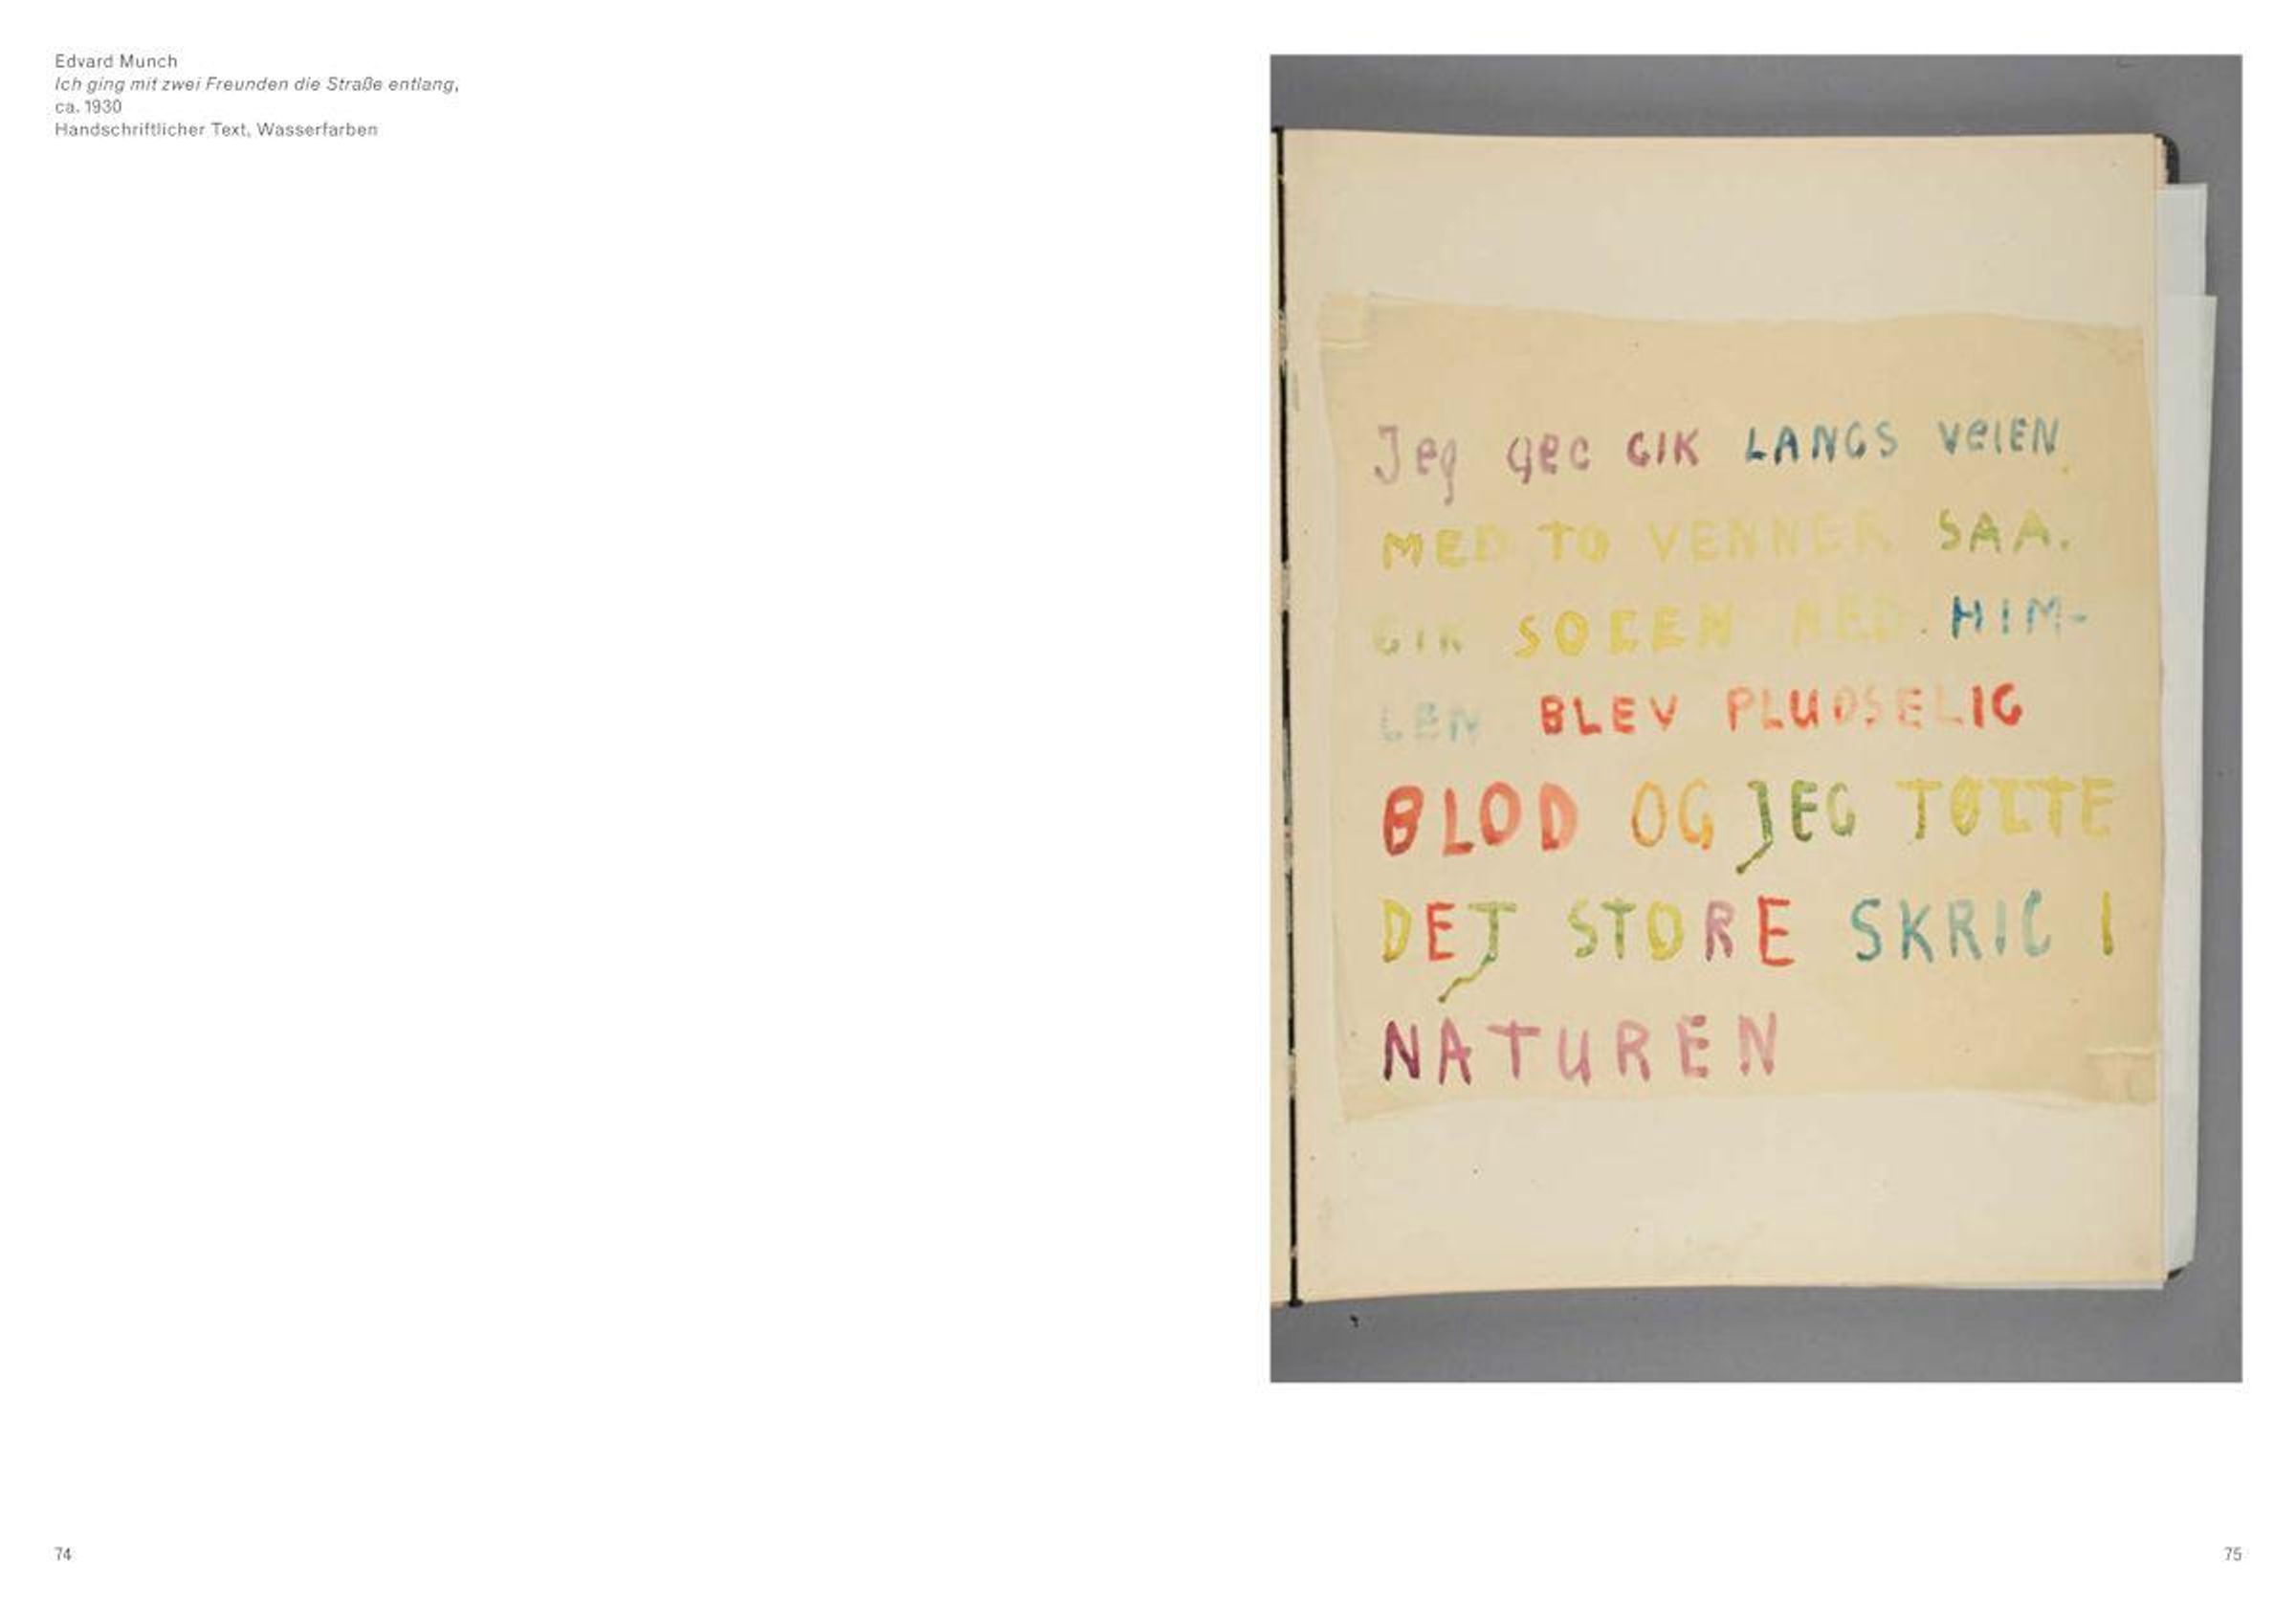 Edvard Munch
Ich ging mit zwei Freunden die Straße entlang,
ca. 1930
Handschriftlicher Text, Wasserfarben
Jeg gec GIK LANGS VeIEN
MED TO VENNER SAA.
GIK SOLEN NED. HIM-
LEN BLEV PLUDSELIG
BLOD OG JEG FØLTE
DET STORE SKRIG I
NATUREN
74
75